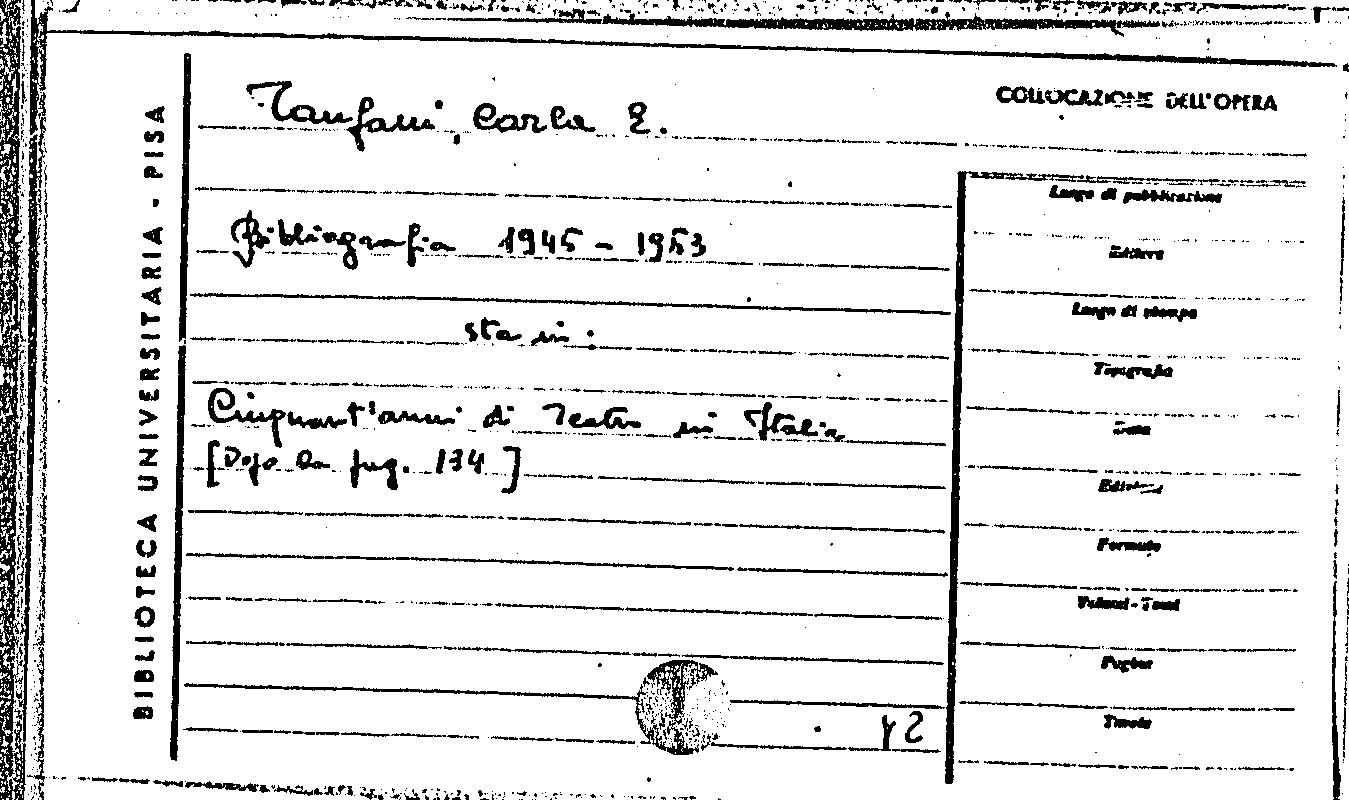 BIBLIOTECA UNIVERSITARIA - PISA
COLLOCAZIONE DELL'OPERA
Tanfani, Carla E.
Bibliografia 1945 - 1953
sta in:
Cinquant'anni di Teatro in Italia
[Dopo la pag. 134]
Luogo di pubblicazione
Editore
Luogo di stampa
Tipografia
Data
Edizione
Formato
Volumi - Tomi
Pagine
Tavole